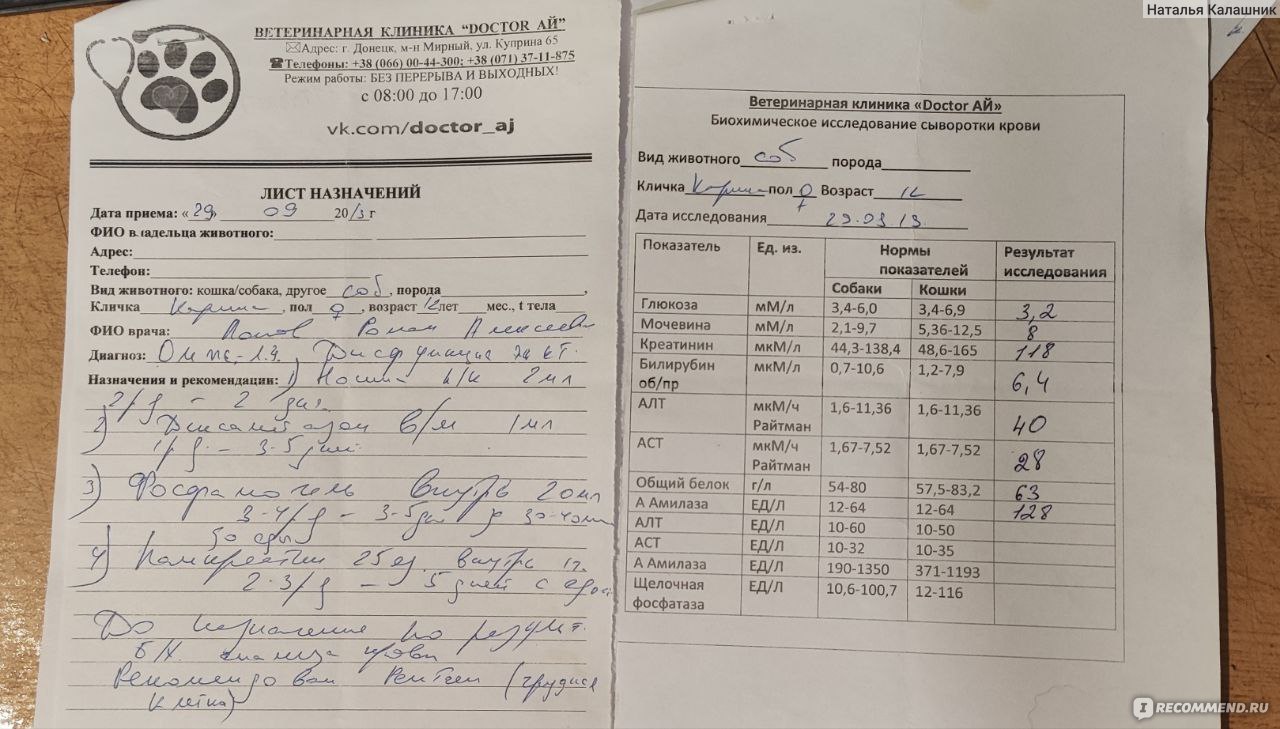 Наталья Калашник
ВЕТЕРИНАРНАЯ КЛИНИКА "DOCTOR АЙ"
Адрес: г. Донецк, м-н Мирный, ул. Куприна 65
Телефоны: +38 (066) 00-44-300; +38 (071) 37-11-875
Режим работы: БЕЗ ПЕРЕРЫВА И ВЫХОДНЫХ!
с 08:00 до 17:00
vk.com/doctor_aj
ЛИСТ НАЗНАЧЕНИЙ
Дата приема: «29» 09 20 г
ФИО владельца животного:
Адрес:
Телефон:
Вид животного: кошка/собака, другое соб, порода ,
Кличка Карина, пол ♀, возраст 12 лет мес., t тела
ФИО врача: Попов Роман Алексеевич
Диагноз: Дисфункция ЖКТ.
Назначения и рекомендации: 1) п/к 2 мл
2/д - 2 дня
2) в/м 1 мл
1/д - 3-5 дней
3) Фосфалюгель внутрь 20 мл
3-4/д - 3-5 дн за 30-40 мин
до еды
4) Панкреатин 25 ед. внутрь 1т.
2-3/д - 5 дней с едой
До назначение по результ.
Б/Х анализа крови
Рекомендован Рентген (грудная
клетка)
Ветеринарная клиника «Doctor АЙ»
Биохимическое исследование сыворотки крови
Вид животного соб порода
Кличка Карина пол ♀ Возраст 12
Дата исследования
Показатель Ед. из. Нормы показателей Результат исследования
Собаки Кошки
Глюкоза мМ/л 3,4-6,0 3,4-6,9 3,2
Мочевина мМ/л 2,1-9,7 5,36-12,5 8
Креатинин мкМ/л 44,3-138,4 48,6-165 118
Билирубин об/пр мкМ/л 0,7-10,6 1,2-7,9 6,4
АЛТ мкМ/ч Райтман 1,6-11,36 1,6-11,36 40
АСТ мкМ/ч Райтман 1,67-7,52 1,67-7,52 28
Общий белок г/л 54-80 57,5-83,2 63
А Амилаза ЕД/Л 12-64 12-64 128
АЛТ ЕД/Л 10-60 10-50
АСТ ЕД/Л 10-32 10-35
А Амилаза ЕД/Л 190-1350 371-1193
Щелочная фосфатаза ЕД/Л 10,6-100,7 12-116
IRECOMMEND.RU